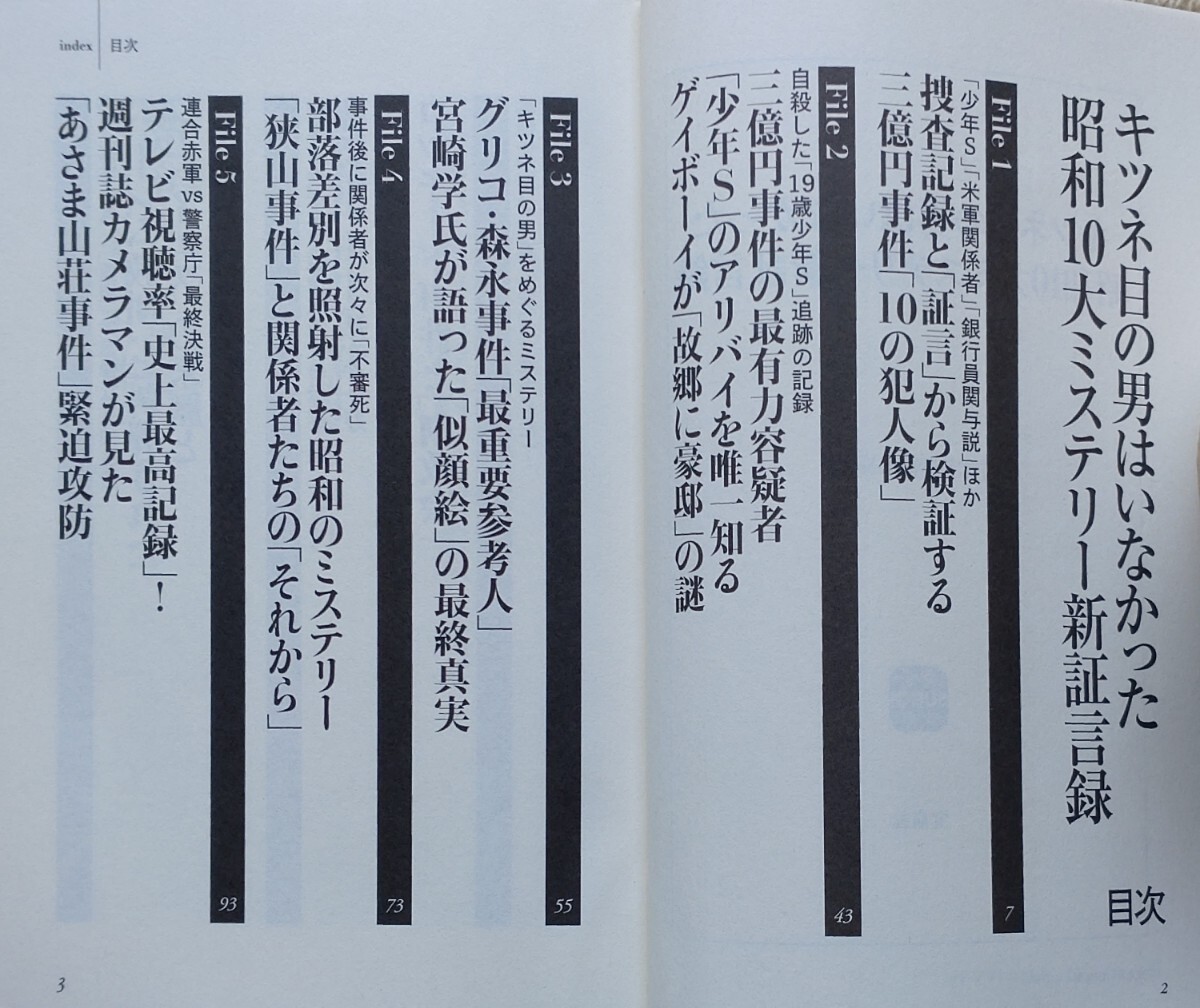 キツネ目の男はいなかった
昭和10大ミステリー新証言録
目次
File 1
7
「少年S」「米軍関係者」「銀行員関与説」ほか
捜査記録と「証言」から検証する
三億円事件「10の犯人像」
File 2
43
自殺した「19歳少年S」追跡の記録
三億円事件の最有力容疑者
「少年S」のアリバイを唯一知る
ゲイボーイが「故郷に豪邸」の謎
2
index
目次
File 3
55
「キツネ目の男」をめぐるミステリー
グリコ・森永事件「最重要参考人」
宮崎学氏が語った「似顔絵」の最終真実
File 4
73
事件後に関係者が次々に「不審死」
部落差別を照射した昭和のミステリー
「狭山事件」と関係者たちの「それから」
File 5
93
連合赤軍vs警察庁「最終決戦」
テレビ視聴率「史上最高記録」！
週刊誌カメラマンが見た
「あさま山荘事件」緊迫攻防
3